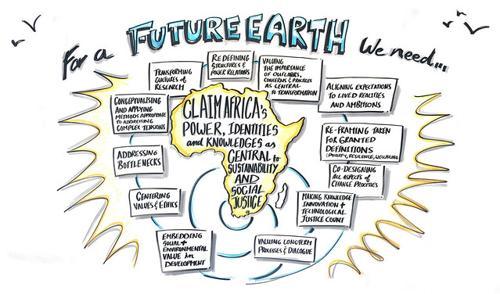 For a FUTURE EARTH We need...
RE-DEFINING
STRUCTURES &
POWER RELATIONS
VALUING
THE IMPORTANCE
OF OUTLIERS,
CONCERNS & PRACTICES
AS CENTRAL
TO TRANSFORMATION
ALIGNING EXPECTATIONS
TO LIVED REALITIES
AND AMBITIONS
RE-FRAMING TAKEN
FOR GRANTED
DEFINITIONS
(POVERTY, RESILIENCE,
CO-DESIGNING
ALL ASPECTS OF
CHANGE PROCESSES
MAKING KNOWLEDGE
INNOVATION +
TECHNOLOGICAL
JUSTICE COUNT
VALUING LONG TERM
PROCESSES & DIALOGUE
EMBEDDING
SOCIAL +
ENVIRONMENTAL
VALUE in
DEVELOPMENT
CENTERING
VALUES & ETHICS
ADDRESSING
BOTTLENECKS
CONCEPTUALISING
AND APPLYING
METHODS APPROPRIATE
TO ADDRESSING
COMPLEX TENSIONS
TRANSFORMING
CULTURES of
RESEARCH
CLAIM AFRICA'S
POWER, IDENTITIES
and KNOWLEDGES as
CENTRAL to
SUSTAINABILITY
AND
SOCIAL
JUSTICE